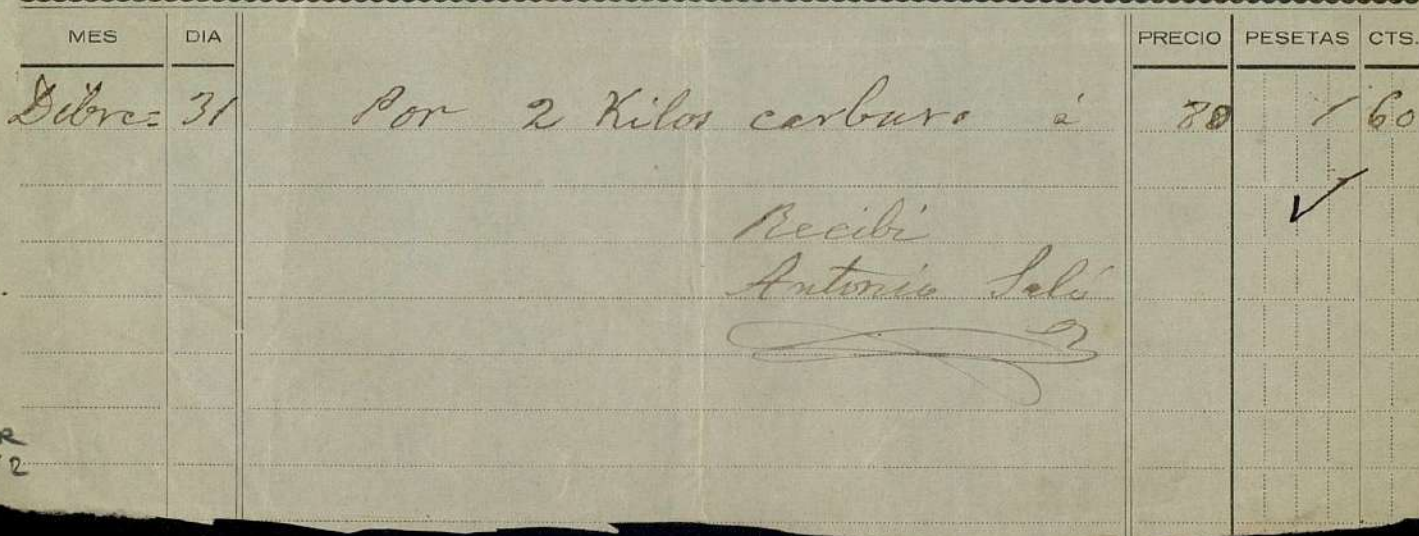 MES DIA PRECIO PESETAS CTS.
Dibre= 31 Por 2 Kilos carburo á 80 1 60
Recibi
Antonio
R
2